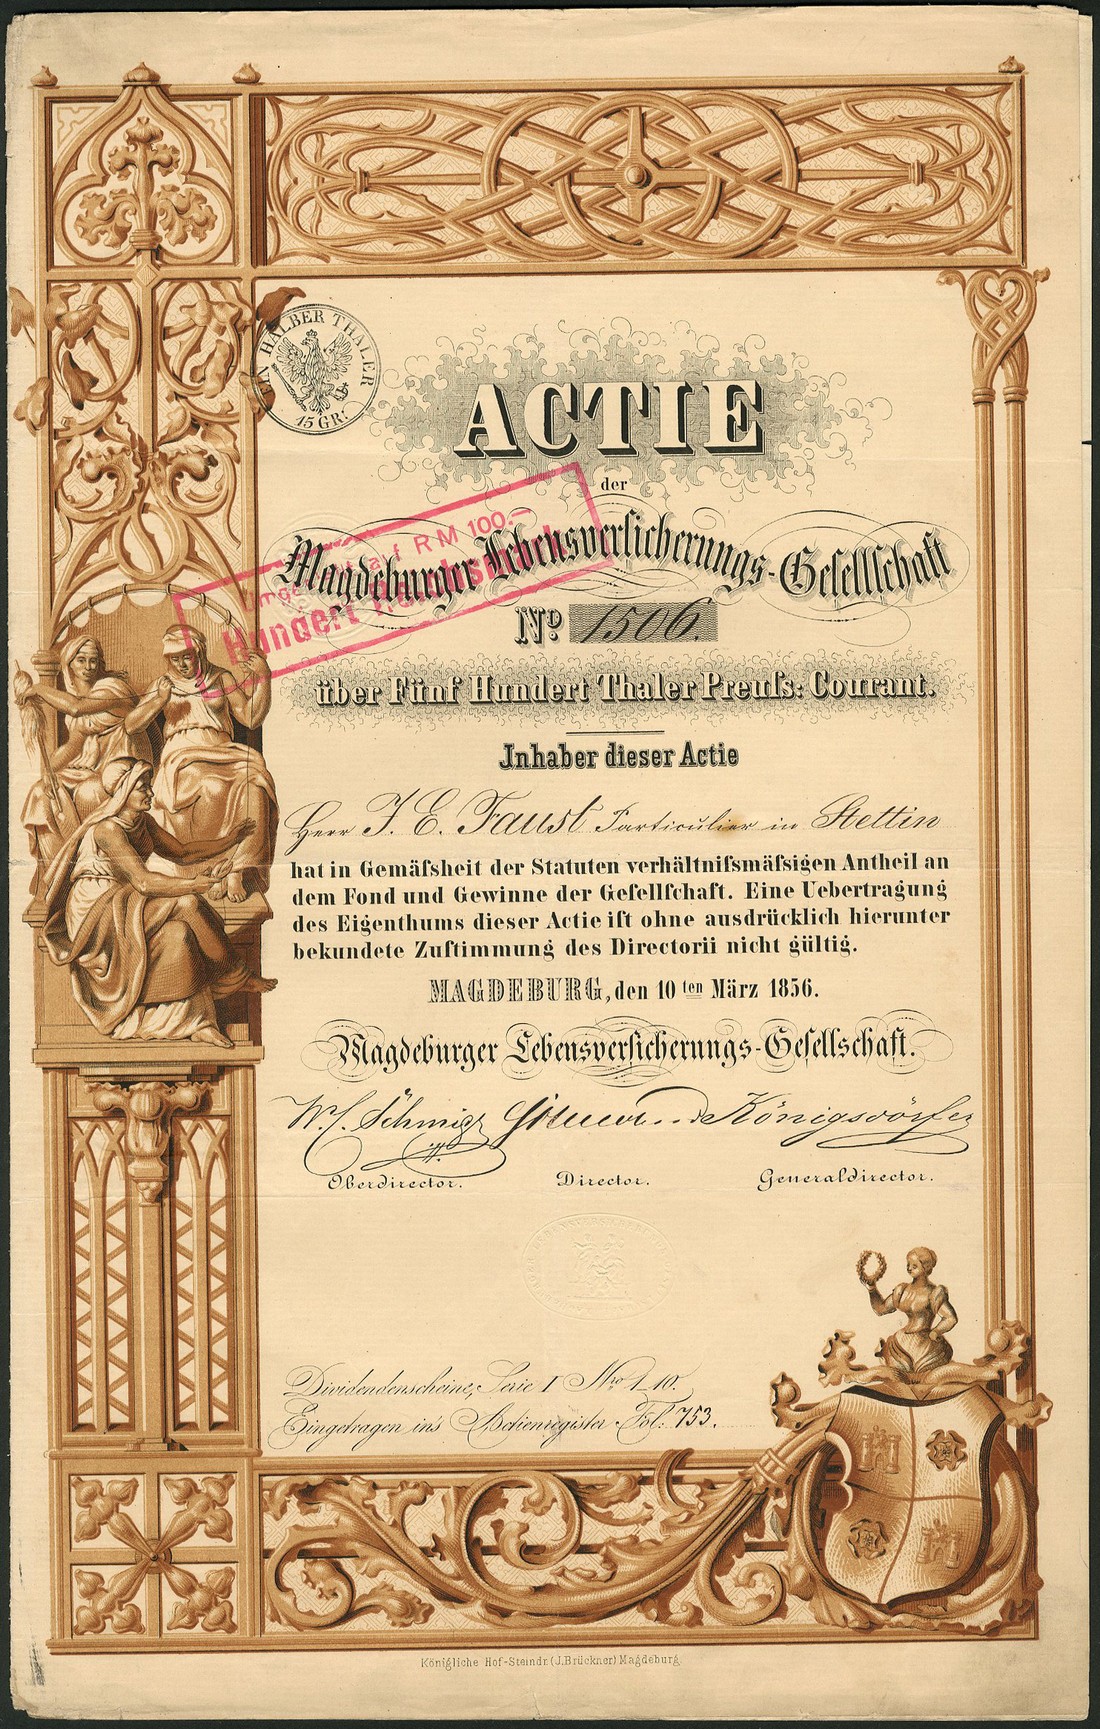 EIN HALBER THALER
15 GR:
ACTIE
der
Magdeburger Lebensverſicherungs-Geſellſchaft
auf RM 100.-
Hundert Reichsmark
No 1506.
über Fünf Hundert Thaler Preuſs: Courant.
Jnhaber dieser Actie
Herr J. E. Faust Particulier in Stettin
hat in Gemäſsheit der Statuten verhältniſsmäſsigen Antheil an
dem Fond und Gewinne der Geſellſchaft. Eine Uebertragung
des Eigenthums dieser Actie iſt ohne ausdrücklich hierunter
bekundete Zuſtimmung des Directorii nicht gültig.
MAGDEBURG, den 10ten März 1856.
Magdeburger Lebensverſicherungs-Geſellschaft.
Oberdirector. Director. Generaldirector.
Dividendenscheine, Serie I Nro 1_10.
Eingetragen in's Actienregister Fol: 753.
Königliche Hof-Steindr. (J. Brückner) Magdeburg.